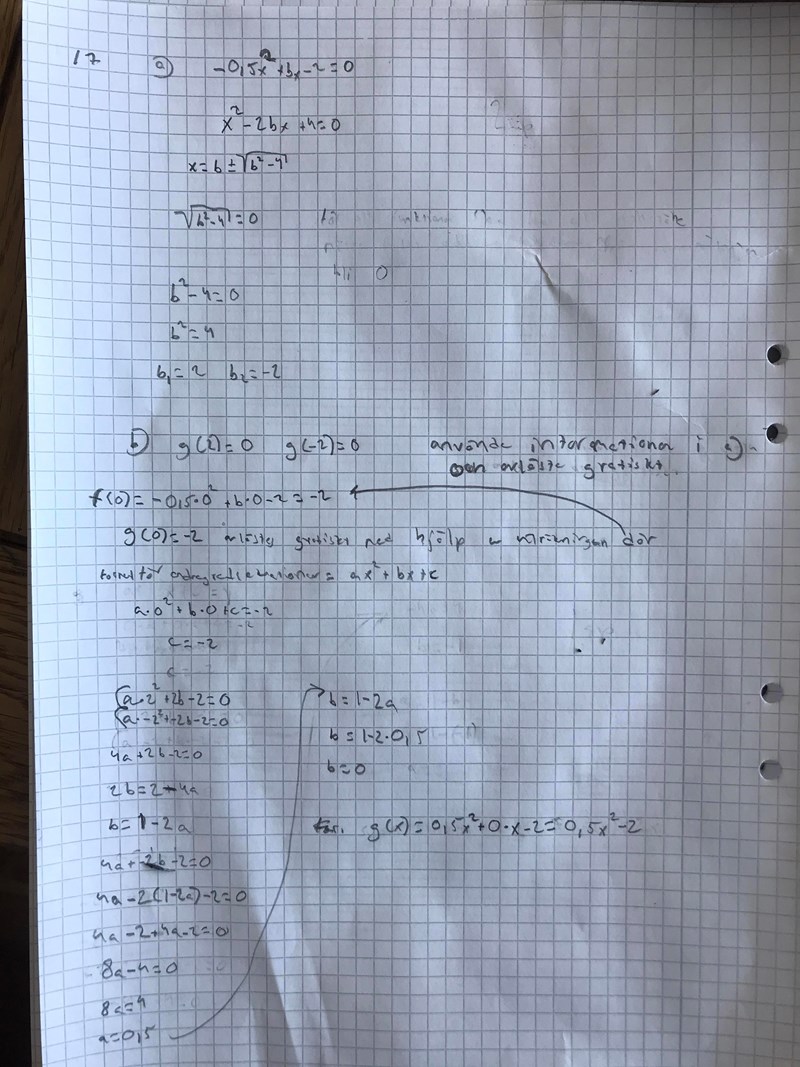 17 a) -0,5x²+bx-2=0
x²-2bx+4=0
x=b±√(b²-4)
√(b²-4)=0
b²-4=0
b²=4
b₁=2 b₂=-2
b) g(2)=0 g(-2)=0 använde informationen i a)
och avläste grafiskt.
f(0)=-0,5·0²+b·0-2=-2
g(0)=-2 grafiskt med hjälp av uträkningen där
ax²+bx+c
a·0²+b·0+c=-2
c=-2
a·2²+2b-2=0
a·-2²+-2b-2=0
4a+2b-2=0
2b=2-4a
b=1-2a
4a+-2b-2=0
4a-2(1-2a)-2=0
4a-2+4a-2=0
8a-4=0
8a=4
a=0,5
b=1-2a
b=1-2·0,5
b=0
g(x)=0,5x²+0·x-2=0,5x²-2